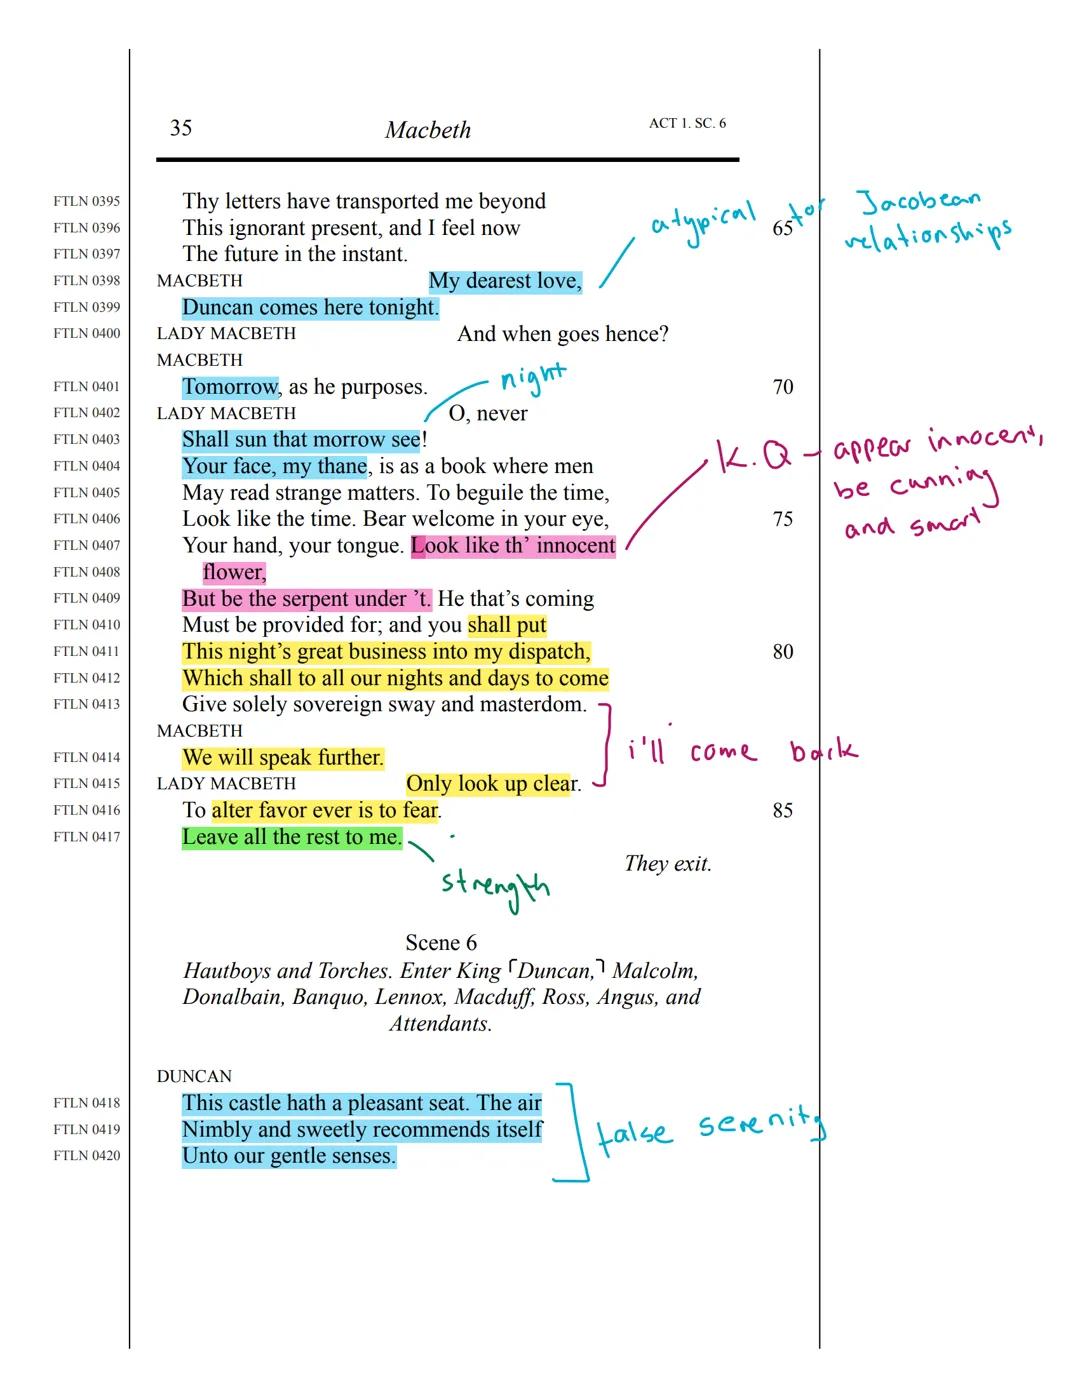 35 Macbeth ACT 1. SC. 6
FTLN 0395 Thy letters have transported me beyond
FTLN 0396 This ignorant present, and I feel now 65
atypical for Jacobean
relationships
FTLN 0397 The future in the instant.
MACBETH
FTLN 0398 My dearest love,
FTLN 0399 Duncan comes here tonight.
FTLN 0400 LADY MACBETH And when goes hence?
MACBETH
FTLN 0401 Tomorrow, as he purposes. 70
night
FTLN 0402 LADY MACBETH O, never
FTLN 0403 Shall sun that morrow see!
FTLN 0404 Your face, my thane, is as a book where men
FTLN 0405 May read strange matters. To beguile the time,
FTLN 0406 Look like the time. Bear welcome in your eye, 75
FTLN 0407 Your hand, your tongue. Look like th’ innocent
FTLN 0408 flower,
K.Q – appear innocent,
be cunning
and smart
FTLN 0409 But be the serpent under ’t. He that’s coming
FTLN 0410 Must be provided for; and you shall put
FTLN 0411 This night’s great business into my dispatch, 80
FTLN 0412 Which shall to all our nights and days to come
FTLN 0413 Give solely sovereign sway and masterdom.
MACBETH
FTLN 0414 We will speak further.
i'll come back
FTLN 0415 LADY MACBETH Only look up clear.
FTLN 0416 To alter favor ever is to fear. 85
FTLN 0417 Leave all the rest to me.
strength
They exit.
Scene 6
Hautboys and Torches. Enter King ⌜Duncan,⌝ Malcolm,
Donalbain, Banquo, Lennox, Macduff, Ross, Angus, and
Attendants.
DUNCAN
FTLN 0418 This castle hath a pleasant seat. The air
FTLN 0419 Nimbly and sweetly recommends itself
FTLN 0420 Unto our gentle senses.
false serenity